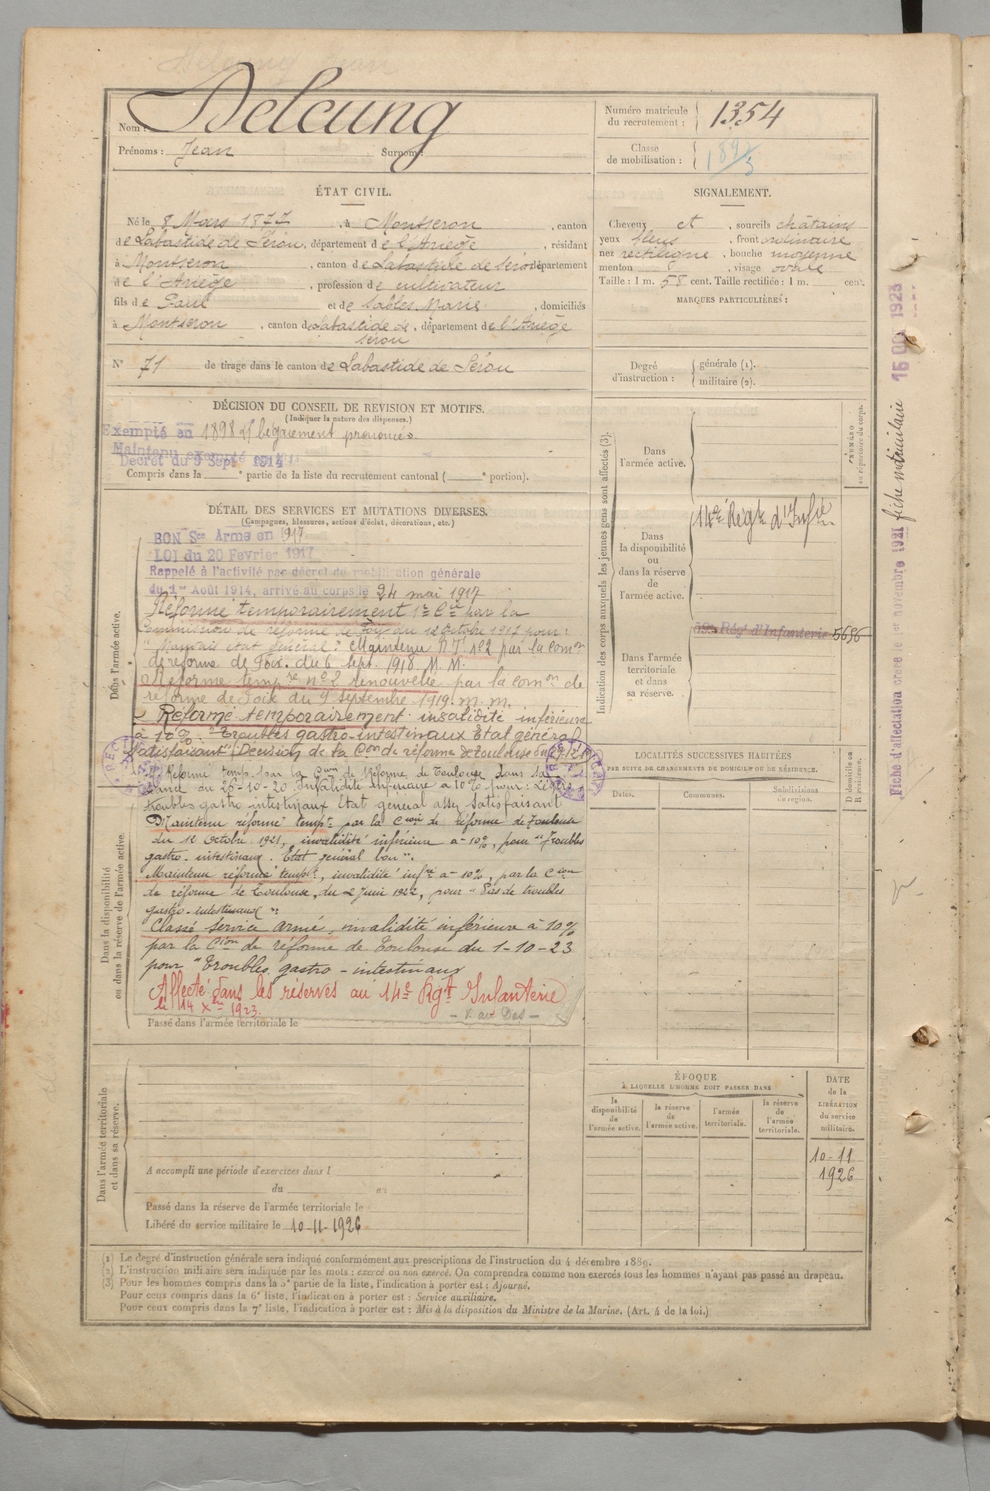 Nom : Delcung
Prénoms : Jean Surnom :
Numéro matricule du recrutement : 1354
Classe de mobilisation :
ÉTAT CIVIL.
Né le 8 Mars 1877, à Montseron, canton
de Labastide de Sérou, département de l'Ariège, résidant
à Montseron, canton de Labastide de Sérou département
de l'Ariège, profession de cultivateur
fils de Paul et de Marie, domiciliés
à Montseron, canton de Labastide de Sérou, département de l'Ariège
N° 71 de tirage dans le canton de Labastide de Sérou
SIGNALEMENT.
Cheveux et, sourcils châtains
yeux bleus, front ordinaire
nez rectiligne, bouche moyenne
menton, visage ovale
Taille : 1 m. 58 cent. Taille rectifiée : 1 m. cent.
MARQUES PARTICULIÈRES :
Degré d'instruction : générale (1).
militaire (2).
DÉCISION DU CONSEIL DE REVISION ET MOTIFS.
(Indiquer la nature des dispenses.)
Exempté en 1898 bégaiement prononcé.
Maintenu exempté
Décret du 9 Sept 1914
Compris dans la ° partie de la liste du recrutement cantonal ( ° portion).
DÉTAIL DES SERVICES ET MUTATIONS DIVERSES.
(Campagnes, blessures, actions d'éclat, décorations, etc.)
Dans l'armée active.
BON Sce Armé en 1917
LOI du 20 Février 1917
Rappelé à l'activité par décret de mobilisation générale
du 1er Août 1914, arrivé au corps le 24 mai 1917
Réformé temporairement 1re Cie par la
Commission de réforme de Foix du 12 Octobre 1917 pour :
"Mauvais état général". Maintenu R.T. n°2 par la comon
de réforme de Foix. du 6 Sept. 1918. M.M.
Réforme tempre n°2 renouvelée par la comon de
réforme de Foix du 9 septembre 1919. m.m.
Réformé temporairement : invalidité inférieure
à 10% : "Troubles gastro-intestinaux Etat général
satisfaisant" Décision de la Con de réforme de Toulouse du
Réformé temp. par la Cion de Réforme de Toulouse dans sa
séance du 26-10-20 Invalidité inférieure à 10% pour : Légers
troubles gastro intestinaux Etat général assez satisfaisant
Maintenu réformé tempre par la Cion de réforme de Toulouse
du 12 Octobre 1921, invalidité inférieure à 10%, pour "Troubles
gastro-intestinaux. Etat général bon".
Maintenu réformé tempre, invalidité infre à 10%, par la Cion
de réforme de Toulouse, du 2 Juin 1922, pour "Pas de troubles
gastro-intestinaux"
Classé Service armé, invalidité inférieure à 10%
par la Cion de réforme de Toulouse du 1-10-23
pour "Troubles gastro-intestinaux
Affecté dans les réserves au 14e Rgt Infanterie
le 14 Xbre 1923.
Dans la disponibilité ou dans la réserve de l'armée active.
Passé dans l'armée territoriale le
Indication des corps auxquels les jeunes gens sont affectés (3).
NUMÉRO au répertoire du corps.
Dans l'armée active.
Dans la disponibilité ou dans la réserve de l'armée active.
14e Régt d'Infie
Dans l'armée territoriale et dans sa réserve.
Régt d'Infanterie 5656
LOCALITÉS SUCCESSIVES HABITÉES
PAR SUITE DE CHANGEMENTS DE DOMICILE OU DE RÉSIDENCE.
Dates. Communes. Subdivisions de région. D domicile ou R résidence.
Fiche d'affectation créée le 1er novembre 1921 fiche matriculaire
ÉPOQUE
À LAQUELLE L'HOMME DOIT PASSER DANS
la disponibilité de l'armée active.
la réserve de l'armée active.
l'armée territoriale.
la réserve de l'armée territoriale.
DATE de la LIBÉRATION du service militaire.
10-11
1926
Dans l'armée territoriale et dans sa réserve.
A accompli une période d'exercices dans l
du au
Passé dans la réserve de l'armée territoriale le
Libéré du service militaire le 10-11-1926
(1) Le degré d'instruction générale sera indiqué conformément aux prescriptions de l'Instruction du 4 décembre 1889.
(2) L'instruction militaire sera indiquée par les mots : exercé ou non exercé. On comprendra comme non exercés tous les hommes n'ayant pas passé au drapeau.
(3) Pour les hommes compris dans la 5e partie de la liste, l'indication à porter est : Ajourné.
Pour ceux compris dans la 6e liste, l'indication à porter est : Service auxiliaire.
Pour ceux compris dans la 7e liste, l'indication à porter est : Mis à la disposition du Ministre de la Marine. (Art. 4 de la loi.)